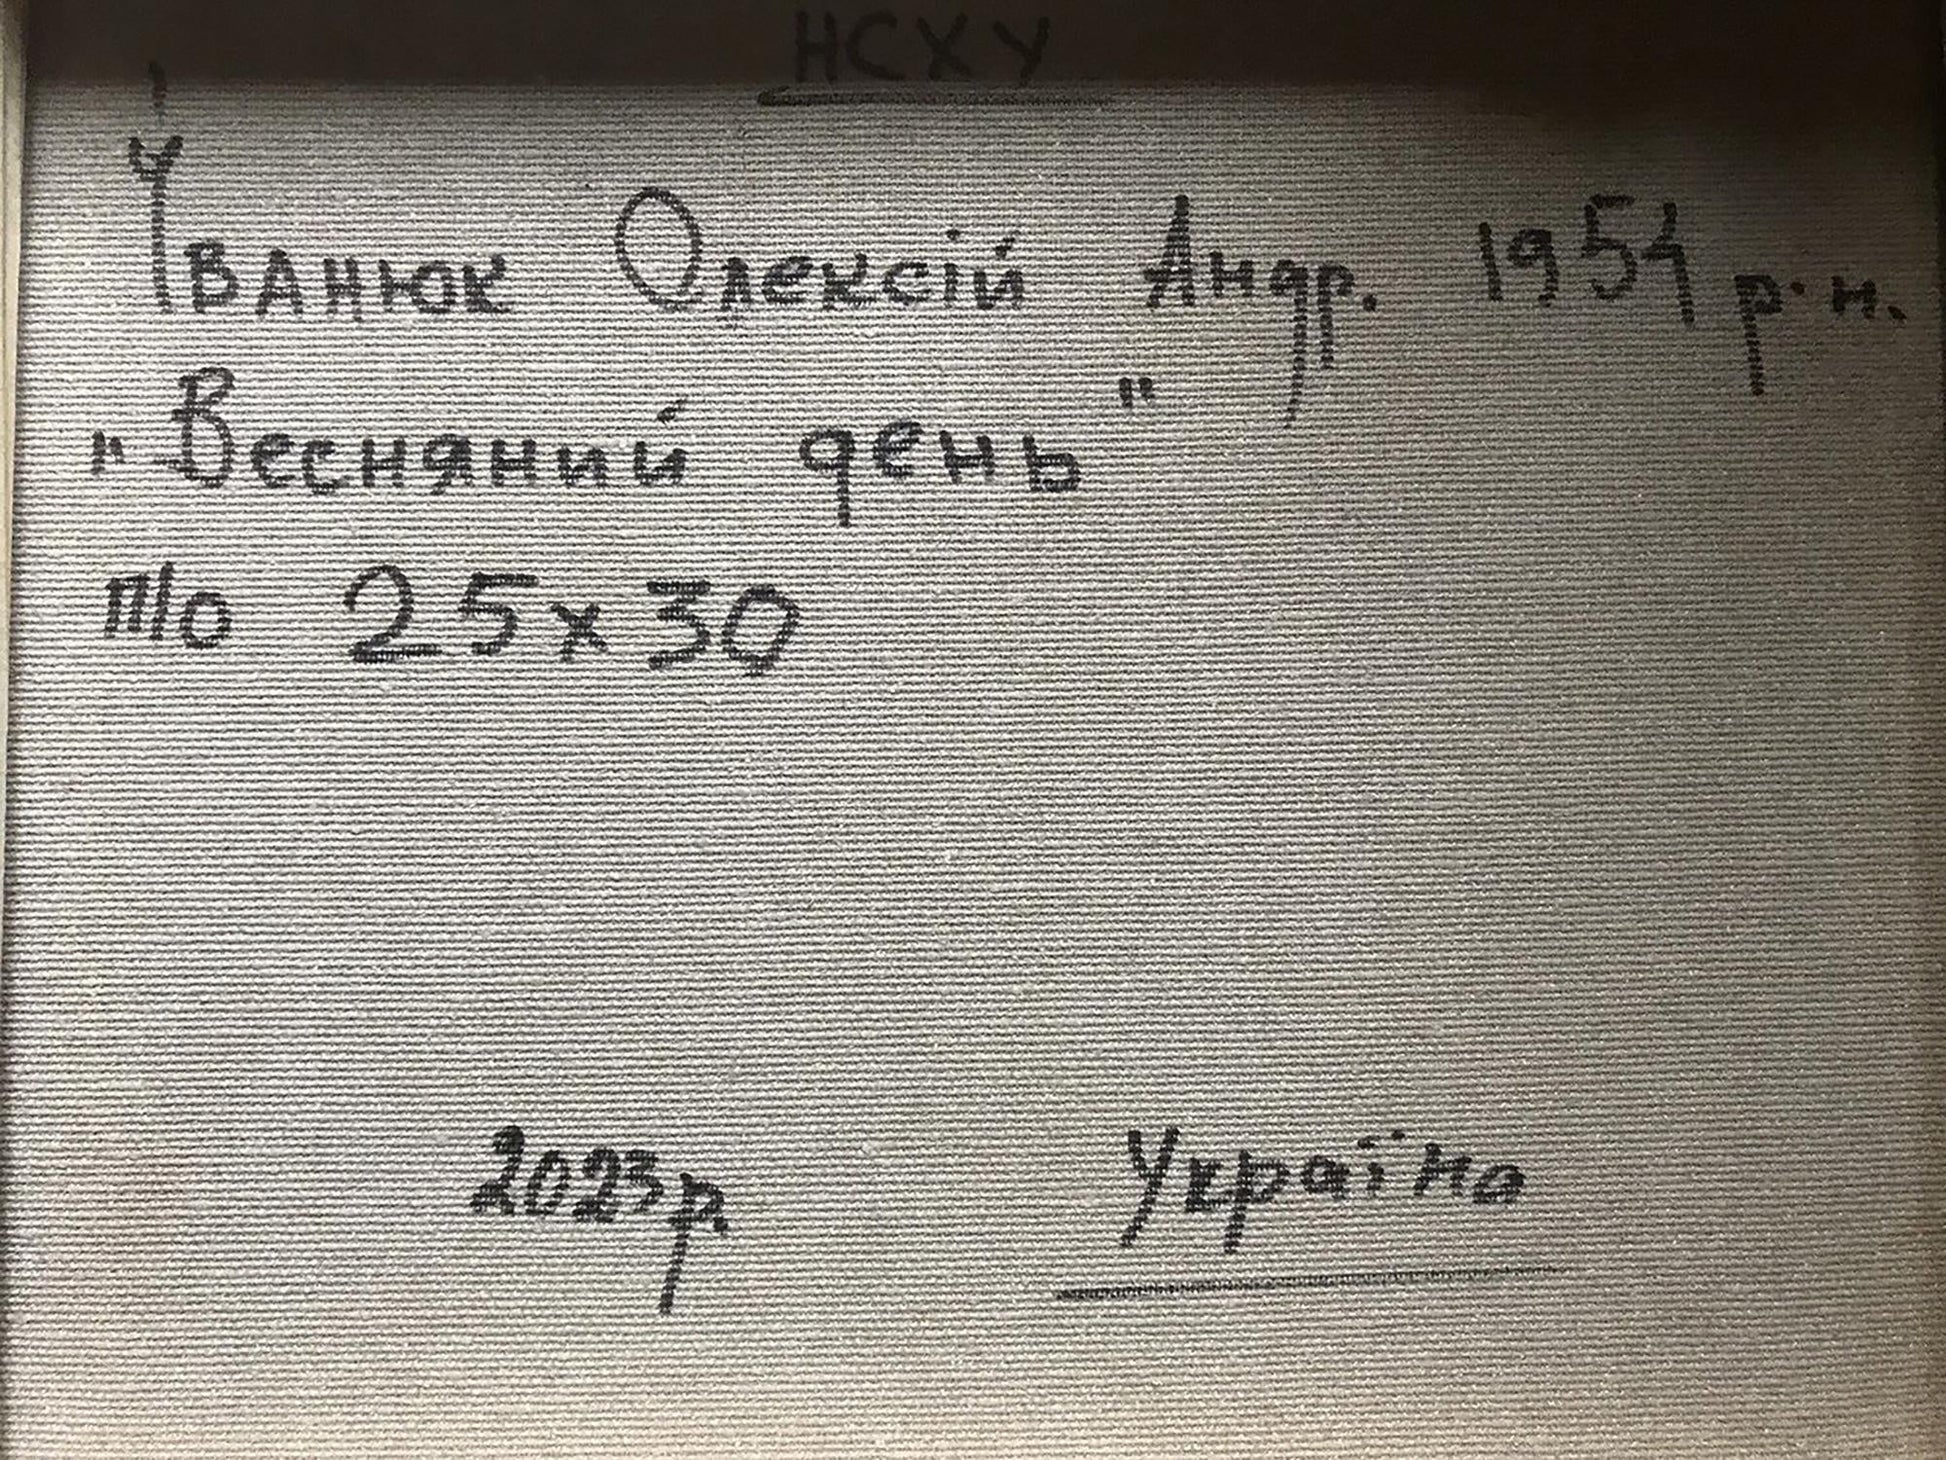 НСХУ
Іванюк Олексій Андр. 1954 р.н.
"Весняний день"
п/о 25х30
2023р. Україна